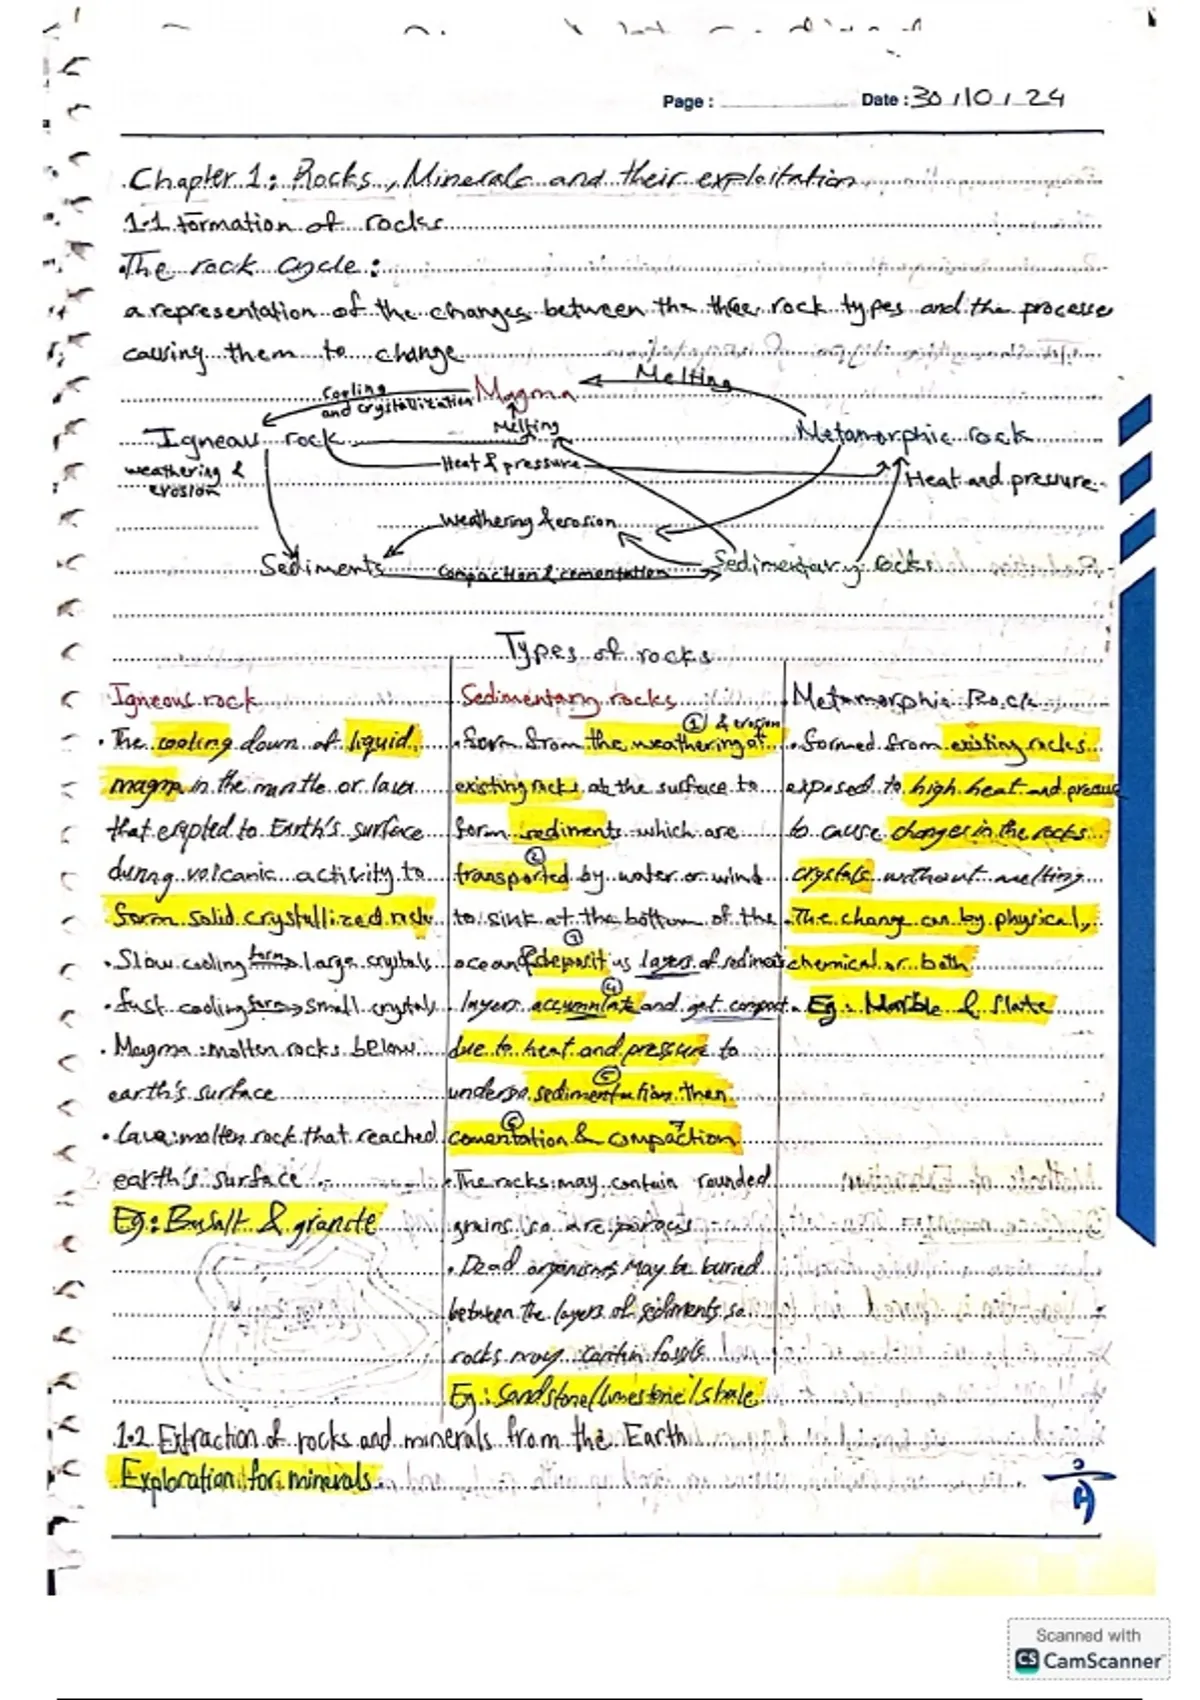 Page :
Date : 30 / 10 / 24
Chapter 1: Rocks, Minerals and their exploitation
1.1 Formation of rocks
•The rock cycle :
a representation of the changes between the three rock types and the processe
causing them to change
Cooling
and crystallization
Magma
Melting
Melting
Igneous rock
Metamorphic rock
Heat & pressure
Heat and pressure
weathering &
erosion
Weathering & erosion
Sediments
Compaction & cementation
Sedimentary rocks
Types of rocks
Igneous rock
• The cooling down of liquid
magma in the mantle or lava
that erupted to Earth's surface
during volcanic activity to
form solid crystallized rocks
• Slow cooling form→ large crystals
• fast cooling form→ small crystals
• Magma : molten rocks below
earth's surface
• Lava : molten rock that reached
earth's surface
Eg : Basalt & granite
Sedimentary rocks
① & erosion
• form from the weathering of
existing rocks at the surface to
form sediments which are
②
transported by water or wind
to sink at the bottom of the
③
ocean & deposit as layers of sediments
④
layers accumulate and get compact
due to heat and pressure to
⑤
undergo sedimentation then
⑥ 7
cementation & compaction
• The rocks may contain rounded
grains so are porous
• Dead organisms may be buried
between the layers of sediments so
rocks may contain fossils
Eg : Sandstone/limestone/shale
Metamorphic Rock
• formed from existing rocks
exposed to high heat and pressure
to cause changes in the rocks
crystals without melting
• The change can by physical,
chemical or both
• Eg : Marble & Slate
1.2 Extraction of rocks and minerals from the Earth
Exploration for minerals
Scanned with
CS CamScanner